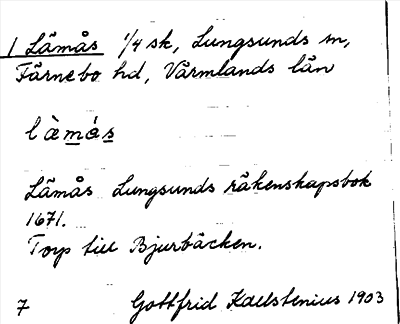 1 Lämås 1/4 sk, Lungsunds sn,
Färnebo hd, Värmlands län
làmás
Lämås Lungsunds räkenskapsbok
1671.
Torp till Bjurbäcken.
7 Gottfrid Kallstenius 1903